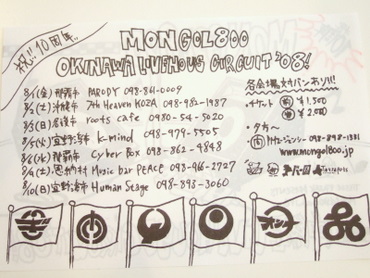 祝!!10周年!!
MONGOL800
OKINAWA LIVEHOUSE CIRCUIT '08!
8/1(金)那覇市 PARODY 098-861-0009
8/2(土)沖縄市 7th Heaven KOZA 098-982-1987
8/3(日)名護市 roots cafe 0980-54-5020
宜野湾市 K-mind 098-979-5505
那覇市 Cyber Box 098-862-4848
恩納村 Music bar PEACE 098-966-2727
8/10(日)宜野湾市 Human Stage 098-898-3060
各会場対バンあり!!
・チケット 前 ¥1,500
当 ¥2,000
・夕方〜
098-898-1331
www.mongol800.jp